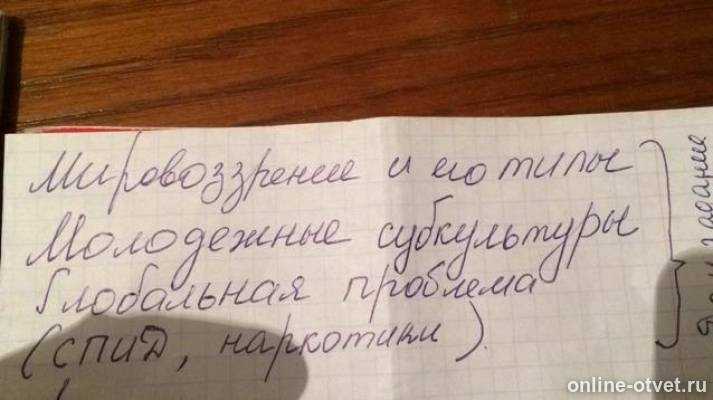 Мировоззрение и его типы
Молодежные субкультуры
Глобальная проблема
(СПИД, наркотики).
задание
online-otvet.ru